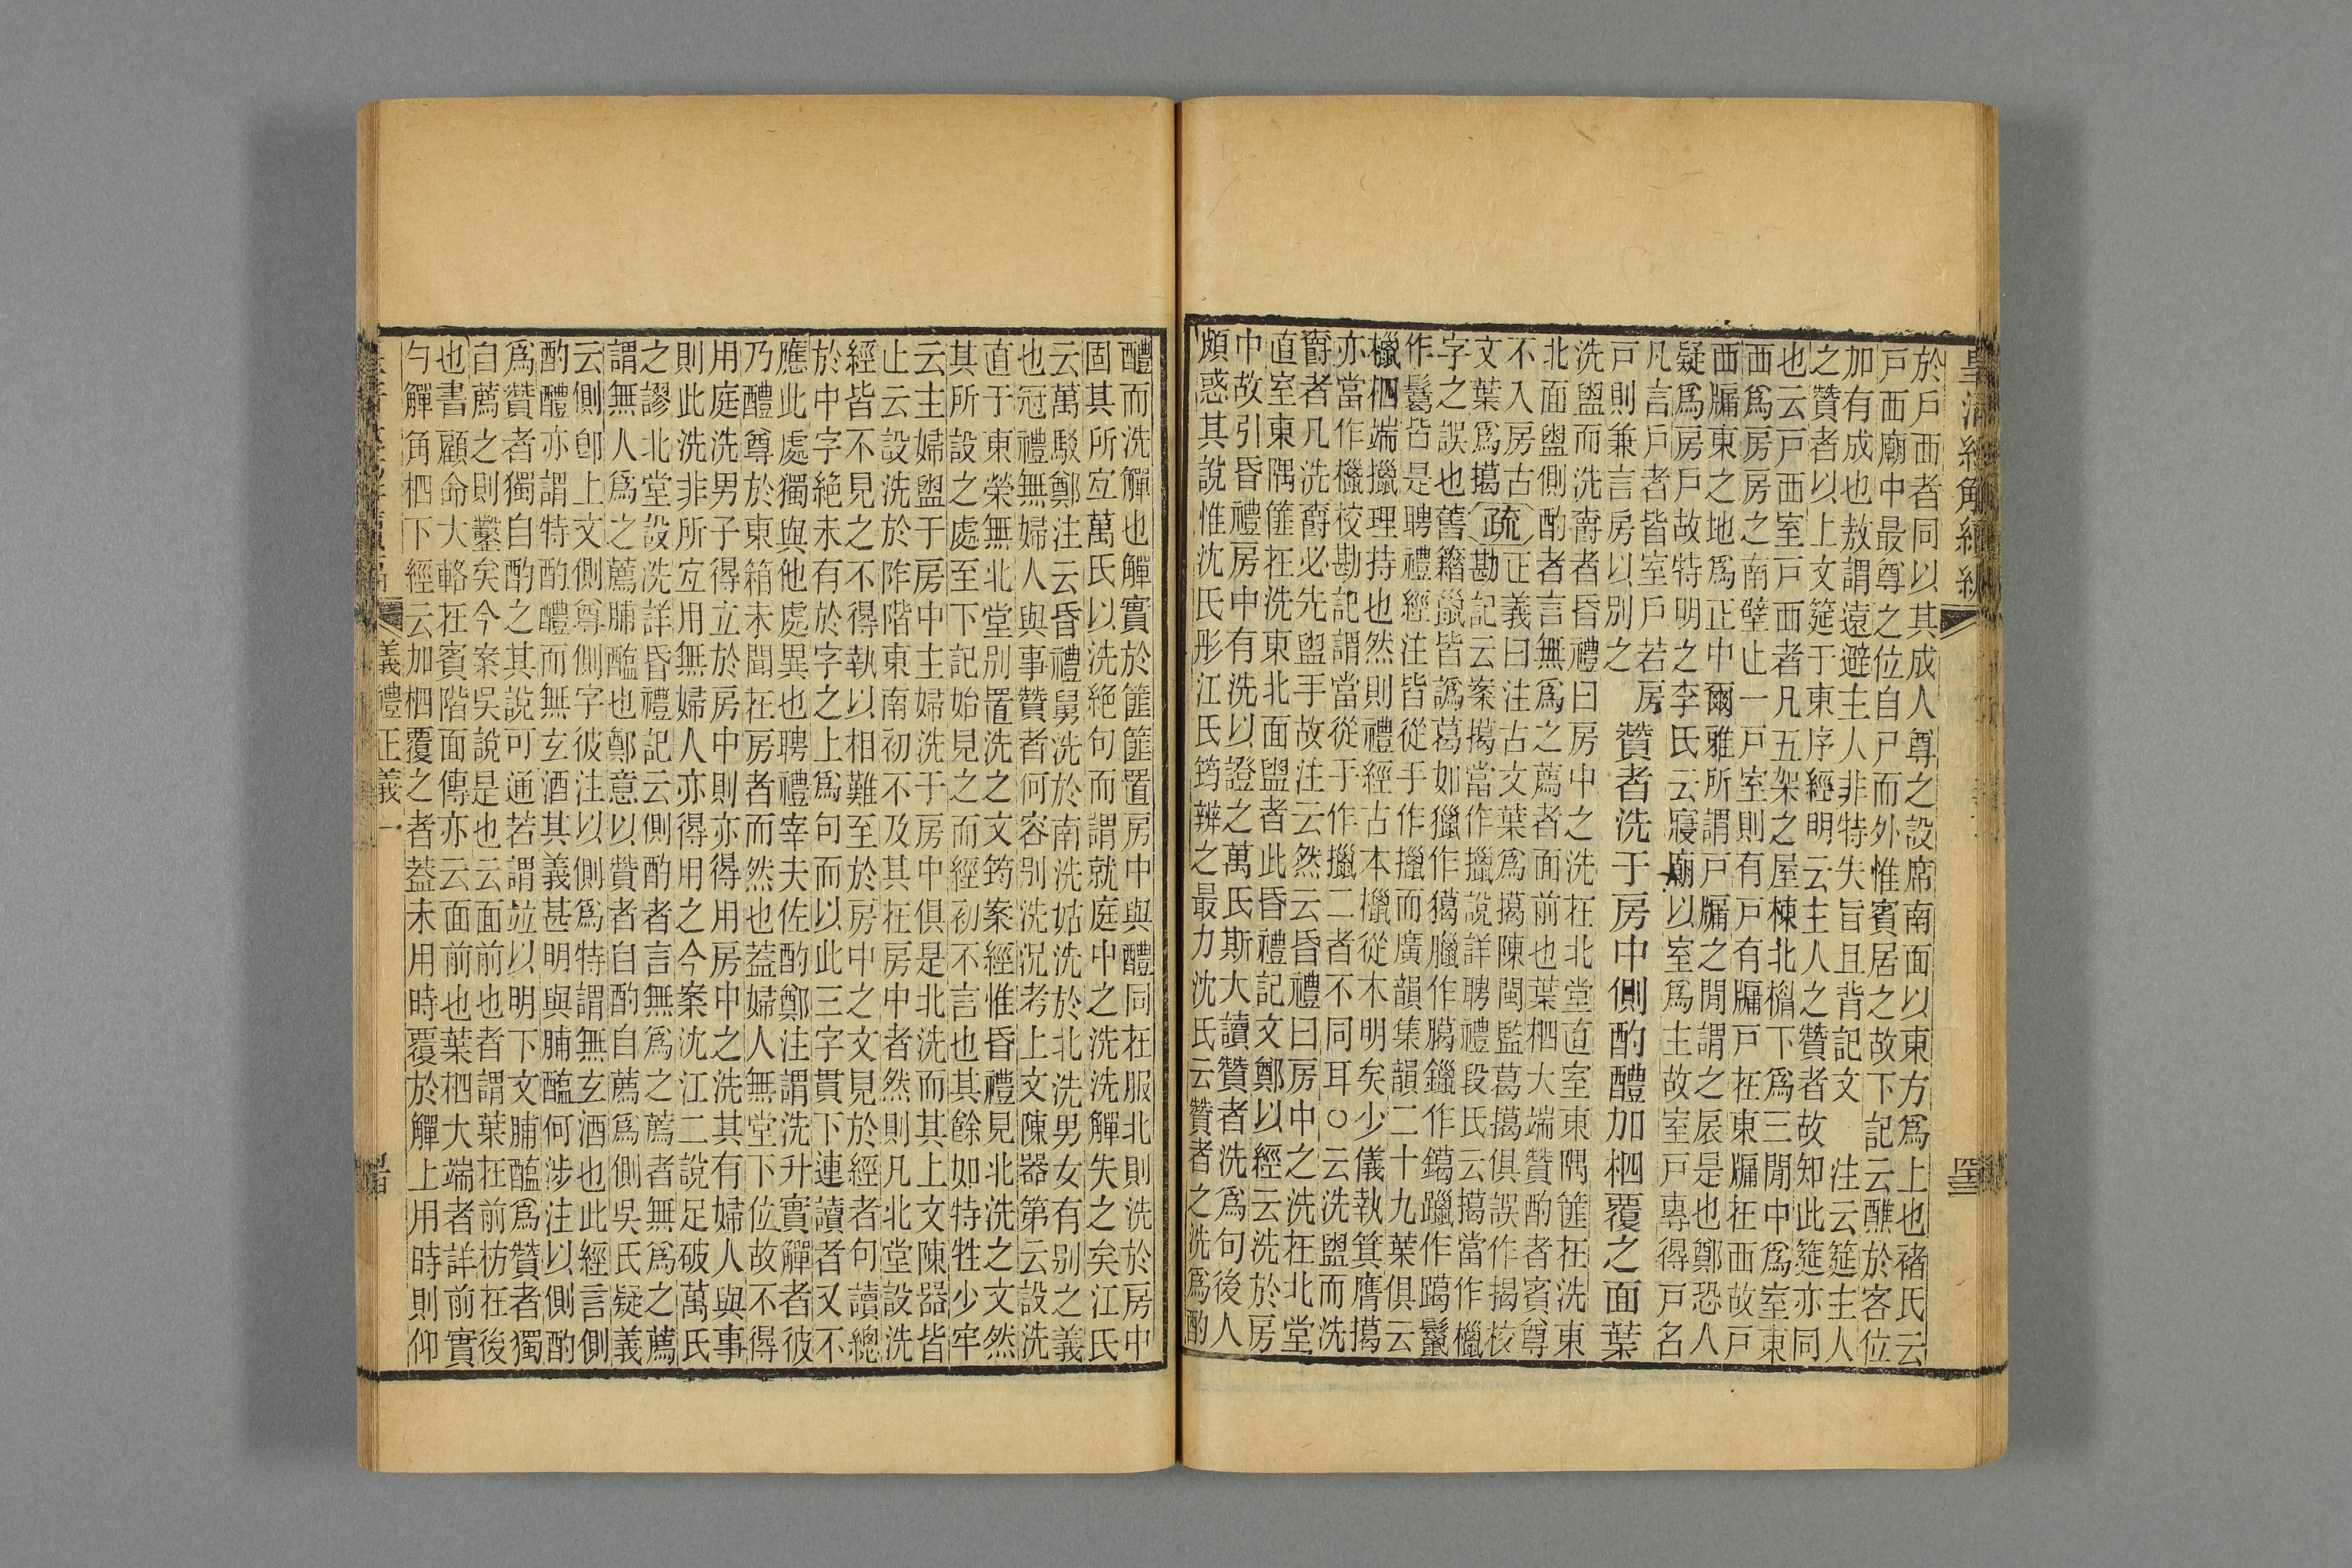 皇清經解續編
於戶西者同以其成人尊之設席南面以東方爲上也褚氏云
戶西廟中最尊之位自尸而外惟賓居之故下記云醮於客位
加有成也敖謂遠避主人非特失旨且背記文　注云筵主人
之贊者以上文筵于東序經明云主人之贊者故知此筵亦同
也云戶西室戶西者凡五架之屋棟北楣下爲三閒中爲室東
西爲房房之南壁止一戶室則有戶有牖戶在東牖在西故戶
西牖東之地爲正中爾雅所謂戶牖之閒謂之扆是也鄭恐人
疑爲房戶故特明之李氏云寢廟以室爲主故室戶專得戶名
凡言戶者皆室戶若房
戶則兼言房以別之
贊者洗于房中側酌醴加柶覆之面葉
洗盥而洗爵者昏禮曰房中之洗在北堂直室東隅篚在洗東
北面盥側酌者言無爲之薦者面前也葉柶大端贊酌者賓尊
不入房古文葉爲擖
疏
正義曰注古文葉爲擖陳閩監葛擖俱誤作揭校
勘記云案擖當作擸說詳聘禮段氏云擖當作㯿
字之誤也舊籍巤皆譌葛如獵作獦臘作臈鑞作鎘躐作躢鬣
作鬄皆是聘禮經注皆從手作擸而廣韻集韻二十九葉俱云
㯿柶端擸理持也然則禮經古本㯿從木明矣少儀執箕膺擖
亦當作㯿校勘記謂當從手作擸二者不同耳○云洗盥而洗
爵者凡洗爵必先盥手故注云然云昏禮曰房中之洗在北堂
直室東隅篚在洗東北面盥者此昏禮記文鄭以經云洗於房
中故引昏禮房中有洗以證之萬氏斯大讀贊者洗爲句後人
頗惑其說惟沈氏彤江氏筠辨之最力沈氏云贊者之洗爲酌
醴而洗觶也觶實於篚篚置房中與醴同在服北則洗於房中
固其所宜萬氏以洗絕句而謂就庭中之洗洗觶失之矣江氏
云萬駁鄭注云昏禮舅洗於南洗姑洗於北洗男女有別之義
也冠禮無婦人與事贊者何容別洗況考上文陳器第云設洗
直于東榮無北堂別置洗之文筠案經惟昏禮見北洗之文然
其所設之處至下記始見之而經初不言也其餘如特牲少牢
云主婦盥于房中主婦洗于房中俱是北洗而其上文陳器皆
止云設洗於阼階東南初不及其在房中者然則凡北堂設洗
經皆不見之不得執以相難至於房中之文見於經者句讀總
於中字絕未有於字之上爲句而以此三字貫下連讀者又不
應此處獨與他處異也聘禮宰夫佐酌鄭注謂洗升實觶者彼
乃醴尊於東箱未聞在房者而然也蓋婦人無堂下位故不得
用庭洗男子得立於房中則亦得用房中之洗其有婦人與事
則此洗非所宜用無婦人亦得用之今案沈江二說足破萬氏
之謬北堂設洗詳昏禮記云側酌者言無爲之薦者無爲之薦
謂無人爲之薦脯醢也鄭意以贊者自酌自薦爲側吳氏疑義
云側卽上文側尊側字彼注以側爲特謂無玄酒也此經言側
酌醴亦謂特酌醴而無玄酒其義甚明與脯醢何涉注以側酌
爲贊者獨自酌之其說可通若謂竝以明下文脯醢爲贊者獨
自薦之則鑿矣今案吳說是也云面前也者謂葉在前枋在後
也書顧命大輅在賓階面傳亦云面前也葉柶大端者詳前實
勺觶角柶下經云加柶覆之者蓋未用時覆於觶上用時則仰
義禮正義一